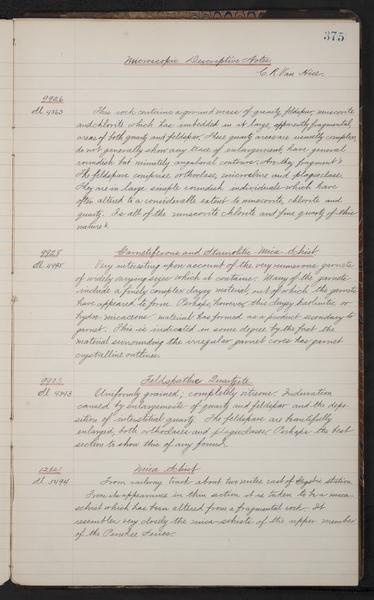 375
Microscopic Descriptive Notes
C. R. Van Hise.
9926
Sl. 4963
This rock contains a ground mass of quartz, feldspar, muscovite
and chlorite which has imbedded in it large, apparently fragmental
areas of both quartz and feldspar. These quartz areas are usually complex,
do not generally show any trace of enlargement, have general
roundish but minutely angular contours. Are they fragments?
The feldspars comprise orthoclase, microcline and plagioclase.
They are in large simple roundish individuals which have
often altered to a considerable extent to muscovite, chlorite and
quartz. Is all of the muscovite chlorite and fine quartz of this
nature?
9928
Garnetiferous and Staurolitic Mica-Schist
Sl. 4495
Very interesting upon account of the very numerous garnets
of widely varying sizes which it contains. Many of the garnets
include a finely complex clayey material, out of which the garnets
have appeared to form. Perhaps, however this clayey kaolinitic or
hydro-micaceous material has formed as a product secondary to
garnet. This is indicated in some degree by the fact the
material surrounding the irregular garnet cores has garnet
crystalline outlines.
Feldspathic Quartzite
Sl. 4943
Uniformly grained; completely vitreous. Induration
caused by enlargements of quartz and feldspar and the depo-
sition of interstitial quartz. The feldspars are beautifully
enlarged, both orthoclase and plagioclase. Perhaps the best
section to show this of any found.
Mica Schist
Sl. 5494
From railway track about two miles east of station.
From its appearance in thin section it is taken to be a mica-
schist which has been altered from a fragmental rock. It
resembles very closely the mica-schists of the upper member
of the Penokee Series.